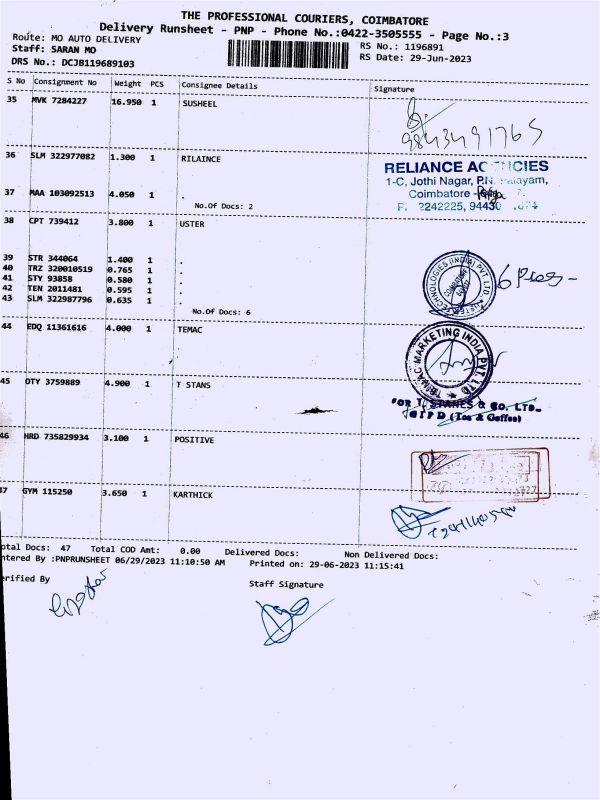 THE PROFESSIONAL COURIERS, COIMBATORE
Delivery Runsheet - PNP - Phone No.:0422-3505555 - Page No.:3
Route: MO AUTO DELIVERY
RS No.: 1196891
Staff: SARAN MO
RS Date: 29-Jun-2023
DRS No.: DCJB119689103
S No Consignment No Weight PCS Consignee Details Signature
35 MVK 7284227 16.950 1 SUSHEEL
9843491765
36 SLM 322977082 1.300 1 RILAINCE
RELIANCE
1-C, Jothi Nagar, P.N.
37 MAA 103092513 4.050 1 .
Coimbatore -
No.Of Docs: 2
2242225, 94430
38 CPT 739412 3.800 1 USTER
39 STR 344064 1.400 1 .
40 TRZ 320010519 0.765 1 .
41 STY 93858 0.580 1 .
42 TEN 2011481 0.595 1 .
43 SLM 322987796 0.635 1 .
No.Of Docs: 6
TECHNOLOGIES (INDIA) PVT. LTD.
44 EDQ 11361616 4.000 1 TEMAC
TEMAC MARKETING INDIA PVT LTD
45 OTY 3759889 4.900 1 T STANS
FOR T. STANES & CO. LTD.
(Tea & Coffee)
46 HRD 735829934 3.100 1 POSITIVE
47 GYM 115250 3.650 1 KARTHICK
otal Docs: 47 Total COD Amt: 0.00 Delivered Docs: Non Delivered Docs:
ntered By :PNPRUNSHEET 06/29/2023 11:10:50 AM Printed on: 29-06-2023 11:15:41
erified By
Staff Signature